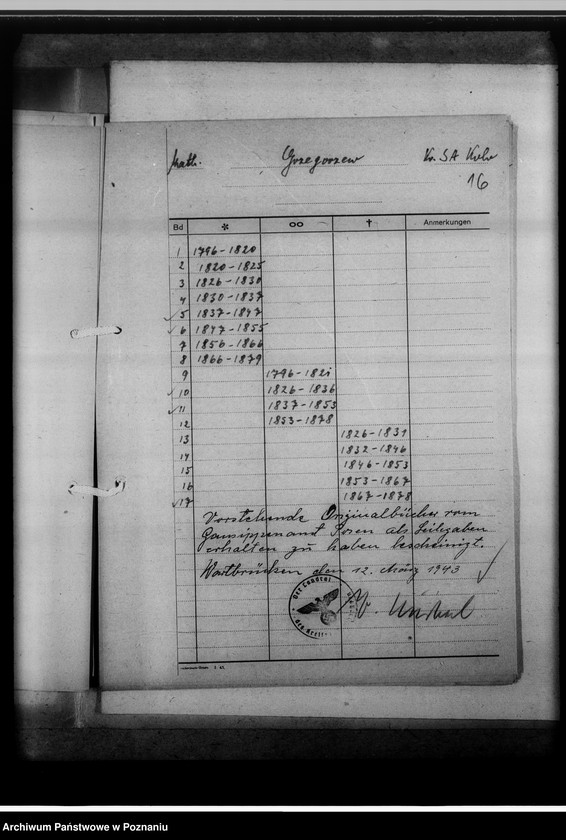 Kath. Grzegorzew Kr. SA Kolo
16
Bd * oo † Anmerkungen
1 1796-1820
2 1820-1825
3 1826-1830
4 1830-1837
5 1837-1847
6 1847-1855
7 1856-1866
8 1866-1879
9 1796-1821
10 1826-1836
11 1837-1853
12 1853-1878
13 1826-1831
14 1832-1846
15 1846-1853
16 1853-1867
17 1867-1878
Vorstehende Originalbücher vom
Gausippenamt Posen als Leihgaben
erhalten zu haben bescheinigt.
Wartbrücken den 12. März 1943
Der Landrat
des Kreises
Archiwum Państwowe w Poznaniu